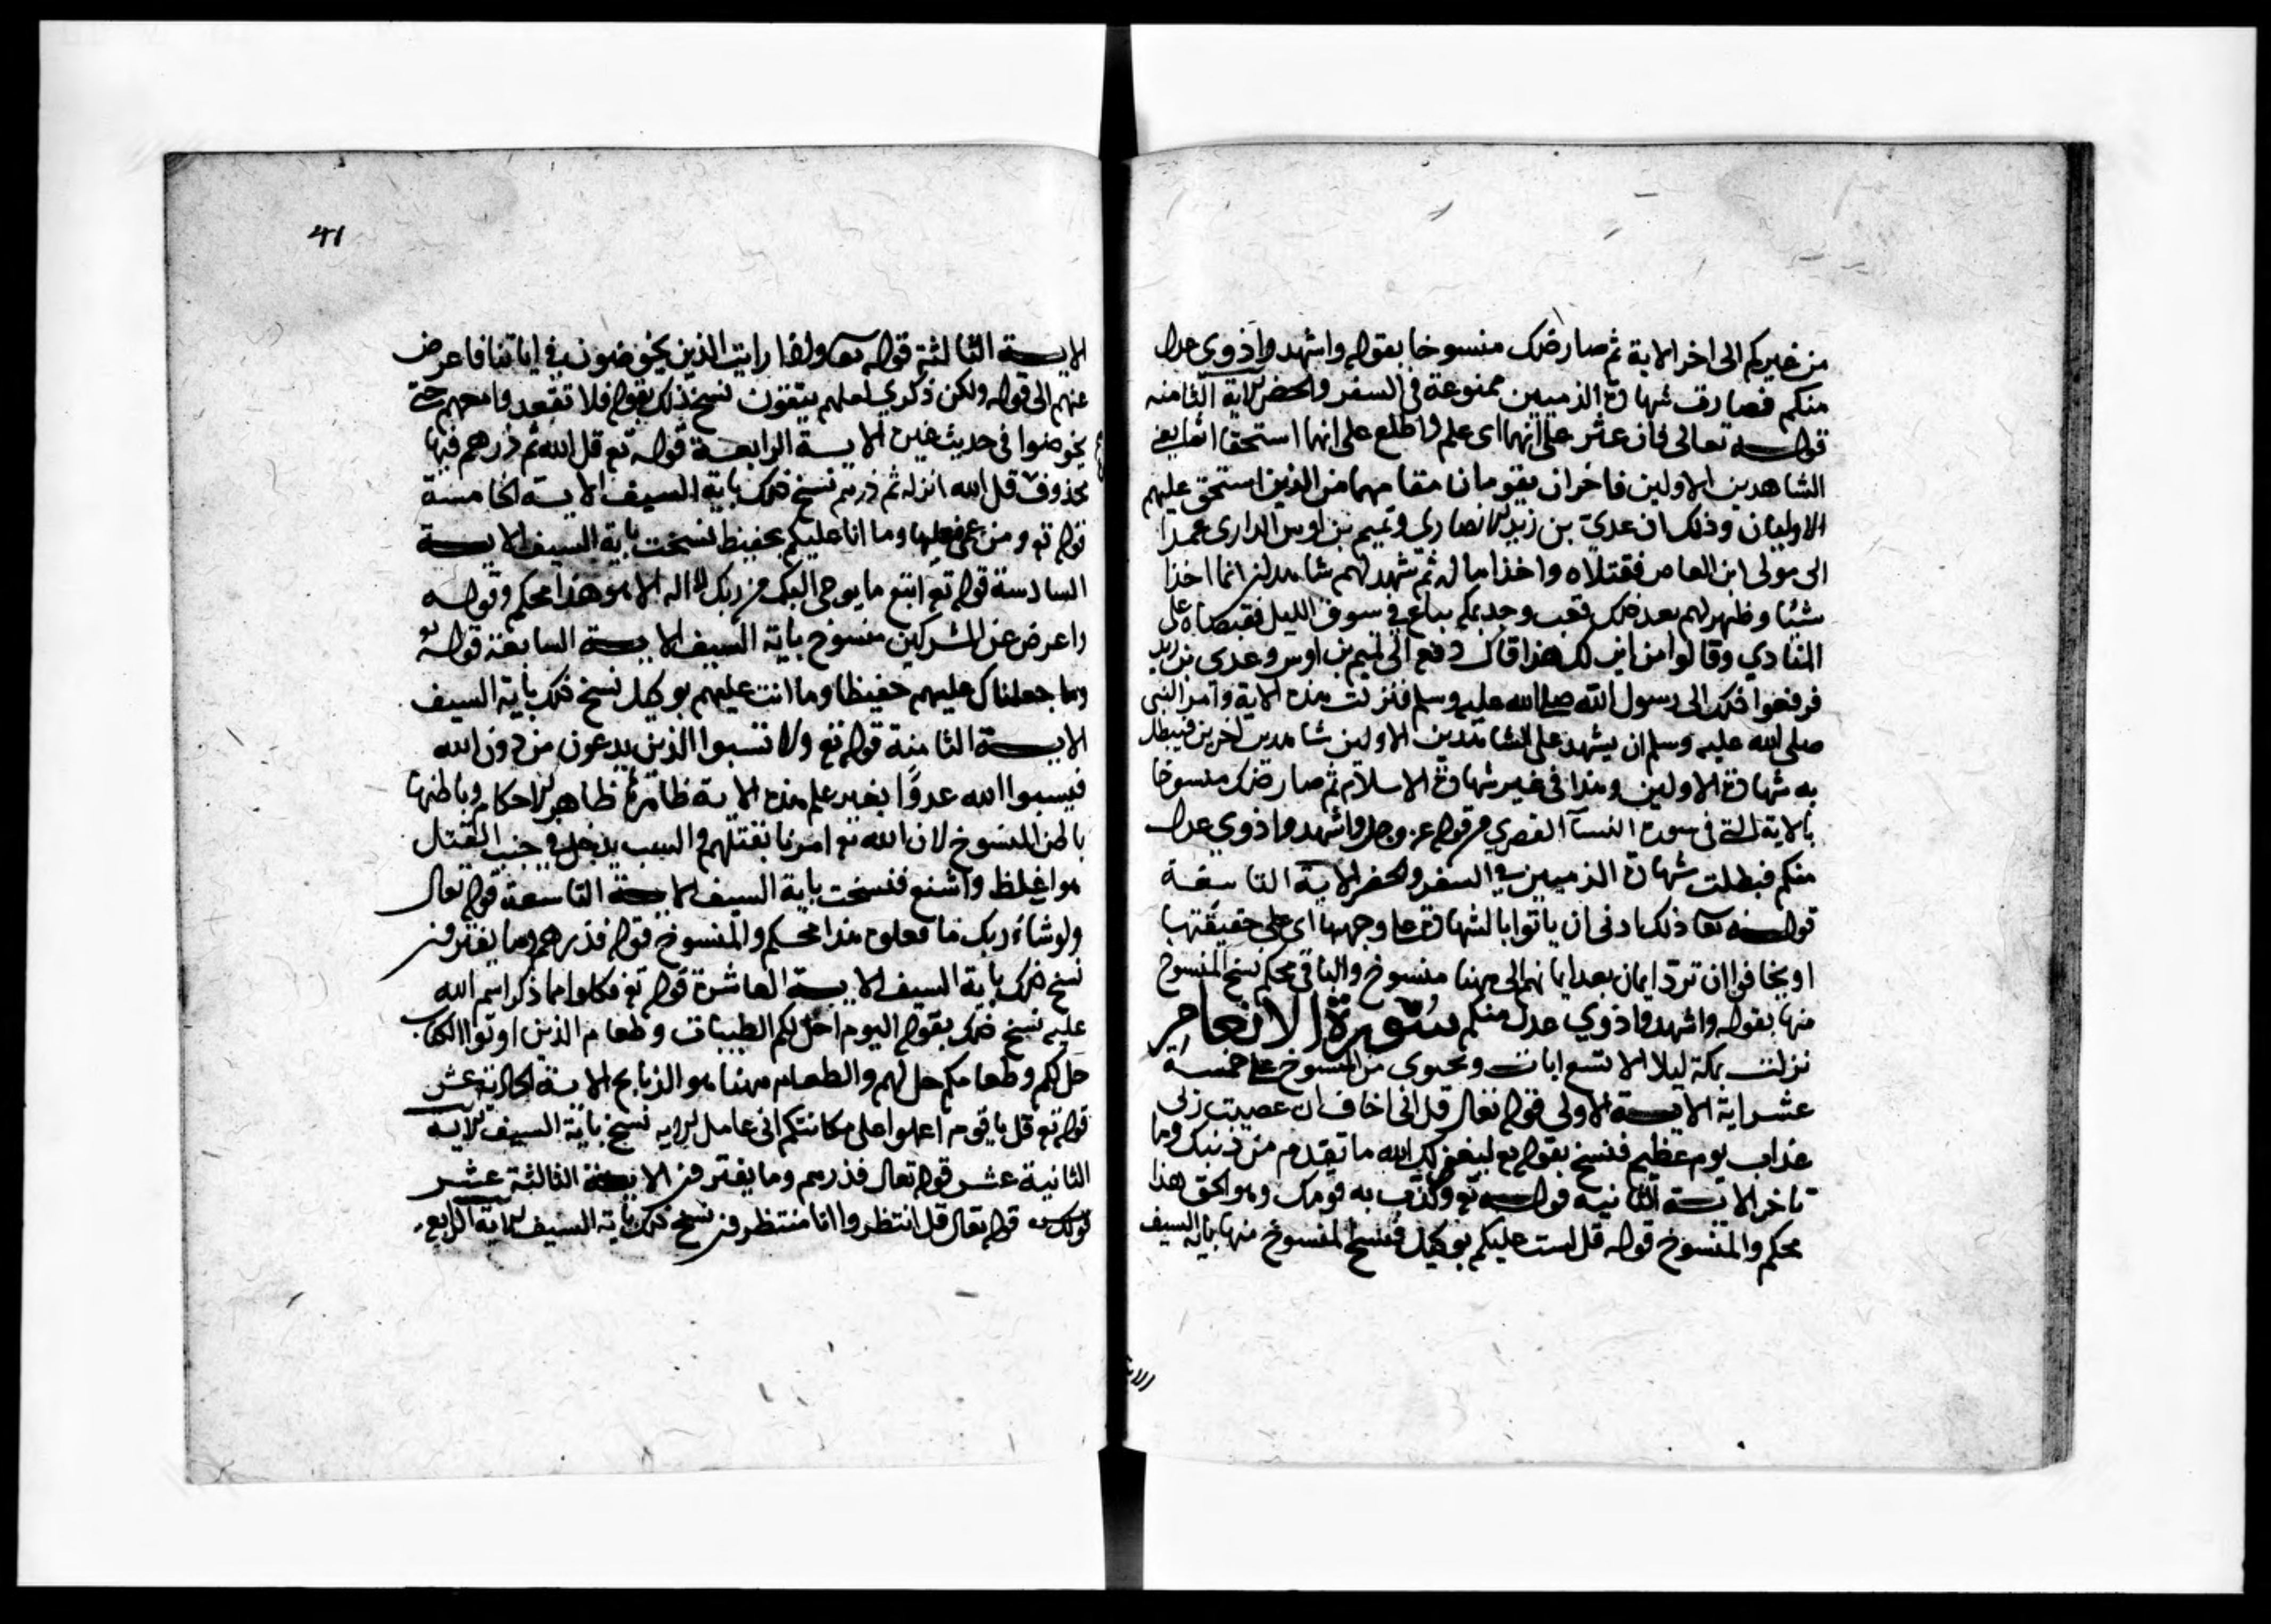 من غيركم الى اخر الاية ثم صار ذلك منسوخا بقوله واشهدوا ذوي عدل
منكم فصارت شهادة الذميين ممنوعة في السفر والحضر الاية الثامنه
قوله تعالى فان عثر على انهما اى علم واطلع على انهما استحقا اثما يعني
الشاهدين الاولين فاخران يقومان مقامهما من الذين استحق عليهم
الاوليان وذلك ان عدي بن زيد الانصاري وتميم بن اوس الدارى عمدا
الى مولى ابن العاص فقتلاه واخذا ماله ثم شهد لهم شاهدان انما اخذا
شيئا وظهر لهم بعد ذلك قعب وجد بمكه يباع في سوق الليل فقبضاه على
المنادي وقالوا من اين لك هذا قال دفع الى تميم بن اوس وعدى بن زيد
فرفعوا ذلك الى رسول الله صلى الله عليه وسلم فنزلت هذه الاية وامر النبي
صلى الله عليه وسلم ان يشهد على الشاهدين الاولين شاهدين اخرين فيبطل
به شهادة الاولين وهذا في غير شهادة الاسلام ثم صار ذلك منسوخا
بالاية التي في سورة النسآ القصري من قوله عز وجل واشهدوا ذوي عدل
منكم فبطلت شهادة الذميين في السفر والحضر الاية التاسعة
قوله تعا ذلك ادنى ان ياتوا بالشهادة على وجهها اى على حقيقتها
او يخافوا ان ترد ايمان بعد ايمانهم الى ههنا منسوخ والباقي محكم نسخ المنسوخ
منها بقوله واشهدوا ذوي عدل منكم سورة الانعام
نزلت بمكة ليلا الا تسع ايات وتحتوى من المنسوخ على خمسة
عشر اية الاية الاولى قوله تعالى قل انى اخاف ان عصيت ربي
عذاب يوم عظيم فنسخ بقوله تع ليغفر لك الله ما تقدم من ذنبك وما
تاخر الاية الثانيه قوله تع وكذب به قومك وهو الحق هذا
محكم والمنسوخ قوله قل لست عليكم بوكيل فنسخ المنسوخ منها باية السيف
41
الاية الثالثة قوله تعا واذا رايت الذين يخوضون في اياتنا فاعرض
عنهم الى قوله ولكن ذكري لعلهم يتقون نسخ ذلك بقوله فلا تقعدوا معهم حتى
يخوضوا في حديث غيره الاية الرابعة قوله تع قل الله ثم ذرهم فيها
محذوف قل الله انزله ثم ذرهم نسخ ذلك باية السيف الاية الخامسة
قوله تع ومن عمى فعليها وما انا عليكم بحفيظ نسخت باية السيف الاية
السادسة قوله تع اتبع ما يوحى اليك من ربك لا اله الا هو هذا محكم وقوله
واعرض عن المشركين منسوخ باية السيف الاية السابعة قوله تع
وما جعلناك عليهم حفيظا وما انت عليهم بوكيل نسخ ذلك باية السيف
الاية الثامنة قوله تع ولا تسبوا الذين يدعون من دون الله
فيسبوا الله عدوا بغير علم هذه الاية ظاهرها ظاهر الاحكام وباطنها
باطن المنسوخ لان الله تع امرنا بقتلهم والسب يدخل في جنب القتل
هو اغلظ واشنع فنسخت باية السيف الاية التاسعة قوله تعالى
ولو شاء ربك ما فعلوه هذا محكم والمنسوخ قوله فذرهم وما يفترون
نسخ ذلك باية السيف الاية العاشرة قوله تع فكلوا مما ذكر اسم الله
عليه نسخ ذلك بقوله اليوم احل لكم الطيبات وطعام الذين اوتوا الكتاب
حل لكم وطعامكم حل لهم والطعام ههنا هو الذبايح الاية الحادية عشر
قوله تع قل يا قوم اعملوا على مكانتكم انى عامل الايه نسخ باية السيف الايه
الثانية عشر قوله تعالى فذرهم وما يفترون الاية الثالثة عشر
قوله تعالى قل انتظروا انا منتظرون نسخ ذلك باية السيف الاية الرابع